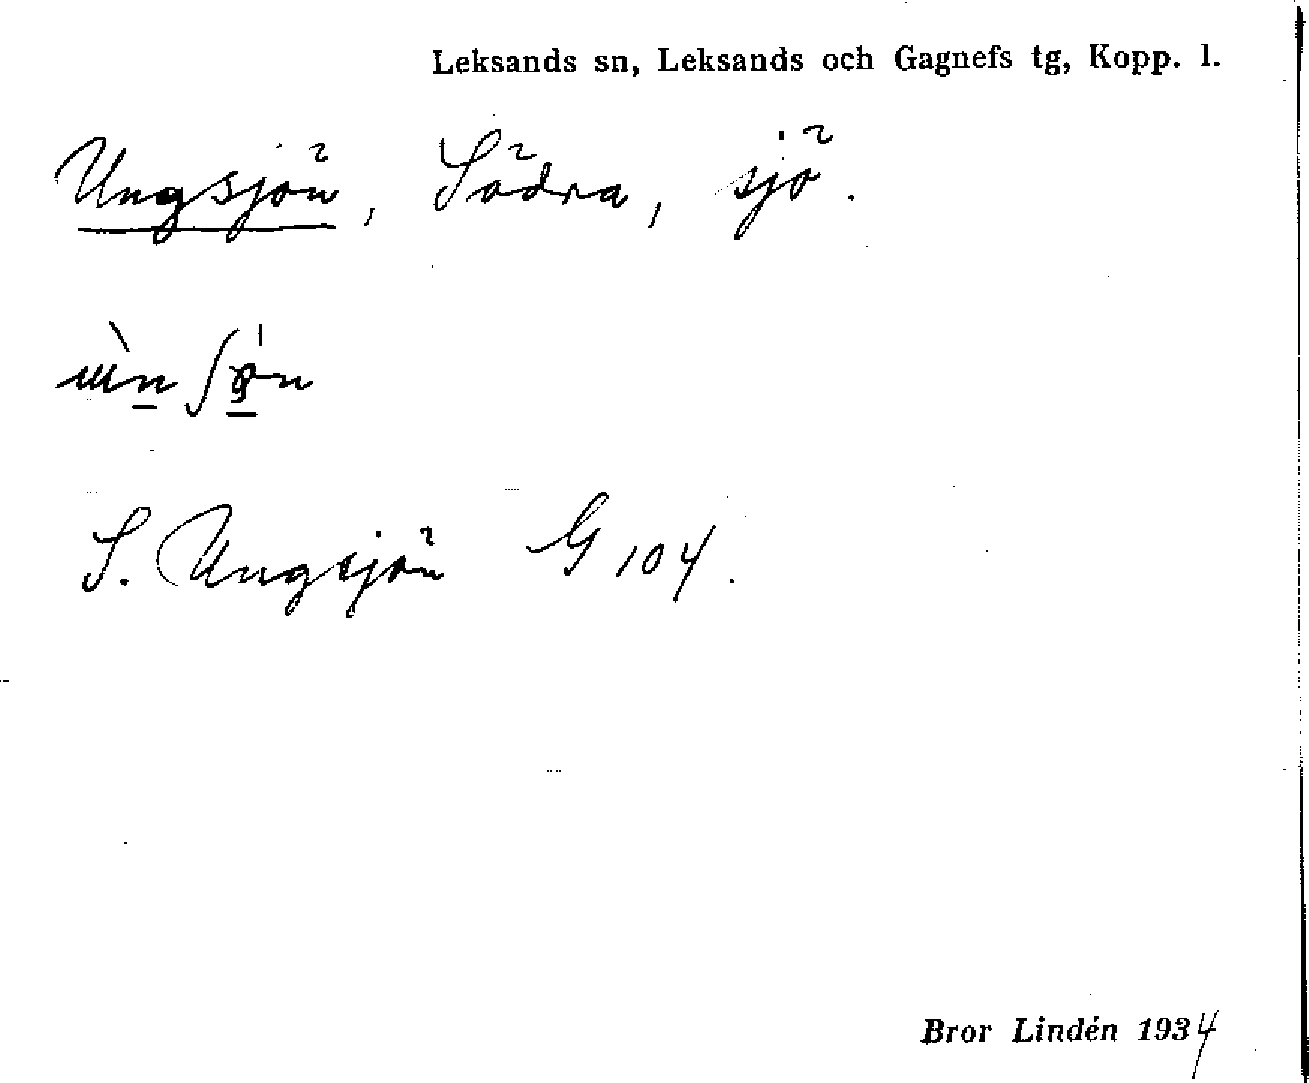 Leksands sn, Leksands och Gagnefs tg, Kopp. l.
Ungsjön, Södra, sjö.
S. Ungsjön G 104.
Bror Lindén 1934